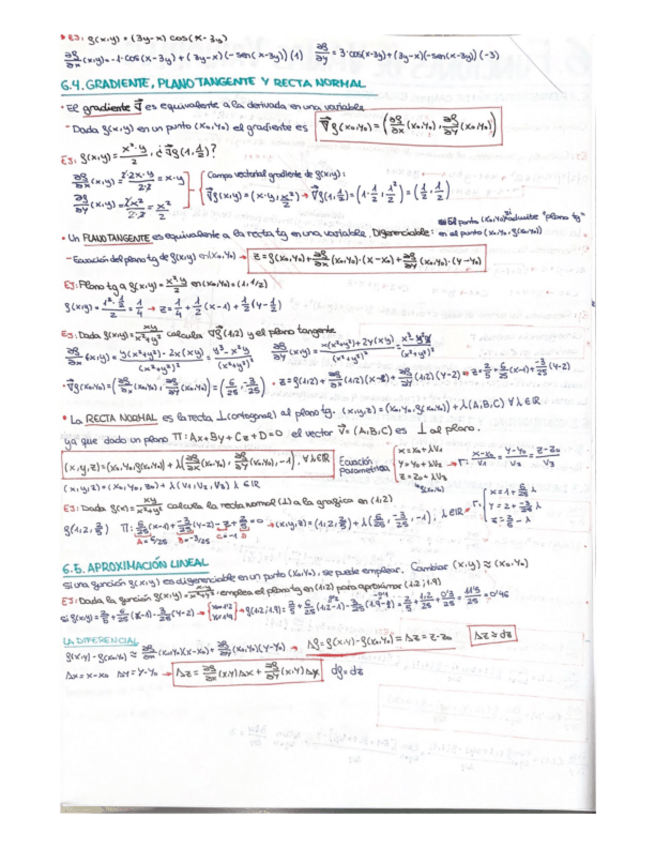 ▸ EJ: f(x,y) = (3y-x) cos(x-3y)
∂f/∂x (x,y) = -1·cos(x-3y) + (3y-x)(-sen(x-3y))(1)   ∂f/∂y = 3·cos(x-3y) + (3y-x)(-sen(x-3y))(-3)
6.4. GRADIENTE, PLANO TANGENTE Y RECTA NORMAL
· El gradiente ∇ es equivalente a la derivada en una variable
- Dada f(x,y) en un punto (x₀,y₀) el gradiente es ∇f(x₀,y₀) = (∂f/∂x (x₀,y₀), ∂f/∂y (x₀,y₀))
EJ: f(x,y) = x²·y/2, ¿∇f(1,1/2)?
∂f/∂x (x,y) = 2·2x·y/2·2 = x·y   Campo vectorial gradiente de f(x,y):
∂f/∂y (x,y) = 2x²/2·2 = x²/2   ∇f(x,y) = (x·y, x²/2) → ∇f(1,1/2) = (1·1/2, 1²/2) = (1/2, 1/2)
· Un PLANO TANGENTE es equivalente a la recta tg en una variable. Diferenciable: si el punto (x₀,y₀) admite "plano tg" en el punto (x₀,y₀,f(x₀,y₀))
- Ecuación del plano tg de f(x,y) en (x₀,y₀) → z = f(x₀,y₀) + ∂f/∂x (x₀,y₀)·(x-x₀) + ∂f/∂y (x₀,y₀)·(y-y₀)
EJ: Plano tg a f(x,y) = x²·y/2 en (x₀,y₀) = (1,1/2)
f(x,y) = 1²·1/2 /2 = 1/4 → z = 1/4 + 1/2 (x-1) + 1/2 (y-1/2)
EJ: Dada f(x,y) = xy/x²+y² calcula ∇f(1,2) y el plano tangente
∂f/∂x (x,y) = y(x²+y²) - 2x(xy)/(x²+y²)² = y³-x²y/(x²+y²)²   ∂f/∂y (x,y) = x(x²+y²)+2y(xy)/(x²+y²)² = x³-y²x/(x²+y²)²
· ∇f(x₀,y₀) = (∂f/∂x (x₀,y₀), ∂f/∂y (x₀,y₀)) = (6/25, -3/25) · z = f(1,2) + ∂f/∂x (1,2)(x-1) + ∂f/∂y (1,2)(y-2) = z = 2/5 + 6/25 (x-1) + -3/25 (y-2)
· La RECTA NORMAL es la recta ⊥ (ortogonal) al plano tg. (x,y,z) = (x₀,y₀,f(x₀,y₀)) + λ(A,B,C) ∀ λ∈ℝ
ya que dado un plano Π: Ax+By+Cz+D=0 el vector v = (A,B,C) es ⊥ al plano.
(x,y,z) = (x₀,y₀,f(x₀,y₀)) + λ(∂f/∂x (x₀,y₀), ∂f/∂y (x₀,y₀), -1), ∀ λ∈ℝ   Ecuación paramétrica { x = x₀+λv₁ y = y₀+λv₂ z = z₀+λv₃ → r = x-x₀/v₁ = y-y₀/v₂ = z-z₀/v₃
(x,y,z) = (x₀,y₀,z₀) + λ(v₁,v₂,v₃) λ∈ℝ   f(x₀,y₀)
EJ: Dada f(x) = xy/x²+y² calcula la recta normal (⊥) a la grafica en (1,2)
f(1,2,2/5)   Π: 6/25 (x-1) + -3/25 (y-2) - z + 2/5 = 0 → (x,y,z) = (1,2,2/5) + λ(6/25, -3/25, -1), λ∈ℝ → r = { x = 1+6/25 λ y = 2+-3/25 λ z = 2/5 - λ
A=6/25 B=-3/25 C=-1 D
6.5. APROXIMACIÓN LINEAL
Si una función f(x,y) es diferenciable en un punto (x₀,y₀), se puede emplear. Cambiar (x,y) ≈ (x₀,y₀)
EJ: Dada la función f(x,y) = x·y/x²+y², emplea el plano tg en (1,2) para aproximar (1.2,1.9)
si f(x,y) = 2/5 + 6/25 (x-1) - 3/25 (y-2) → f(1.2,1.9) = 2/5 + 6/25 (1.2-1) - 3/25 (1.9-2) = 2/5 + 1.2/25 + 0'3/25 = 11'5/25 = 0'46
LA DIFERENCIAL
f(x,y) - f(x₀,y₀) ≈ ∂f/∂x (x₀,y₀)(x-x₀) + ∂f/∂y (x₀,y₀)(y-y₀) → Δf = f(x,y) - f(x₀,y₀) = Δz = z-z₀   Δz ≈ dz
Δx = x-x₀ Δy = y-y₀ → Δz = ∂f/∂x (x,y) Δx + ∂f/∂y (x,y) Δy   df = dz